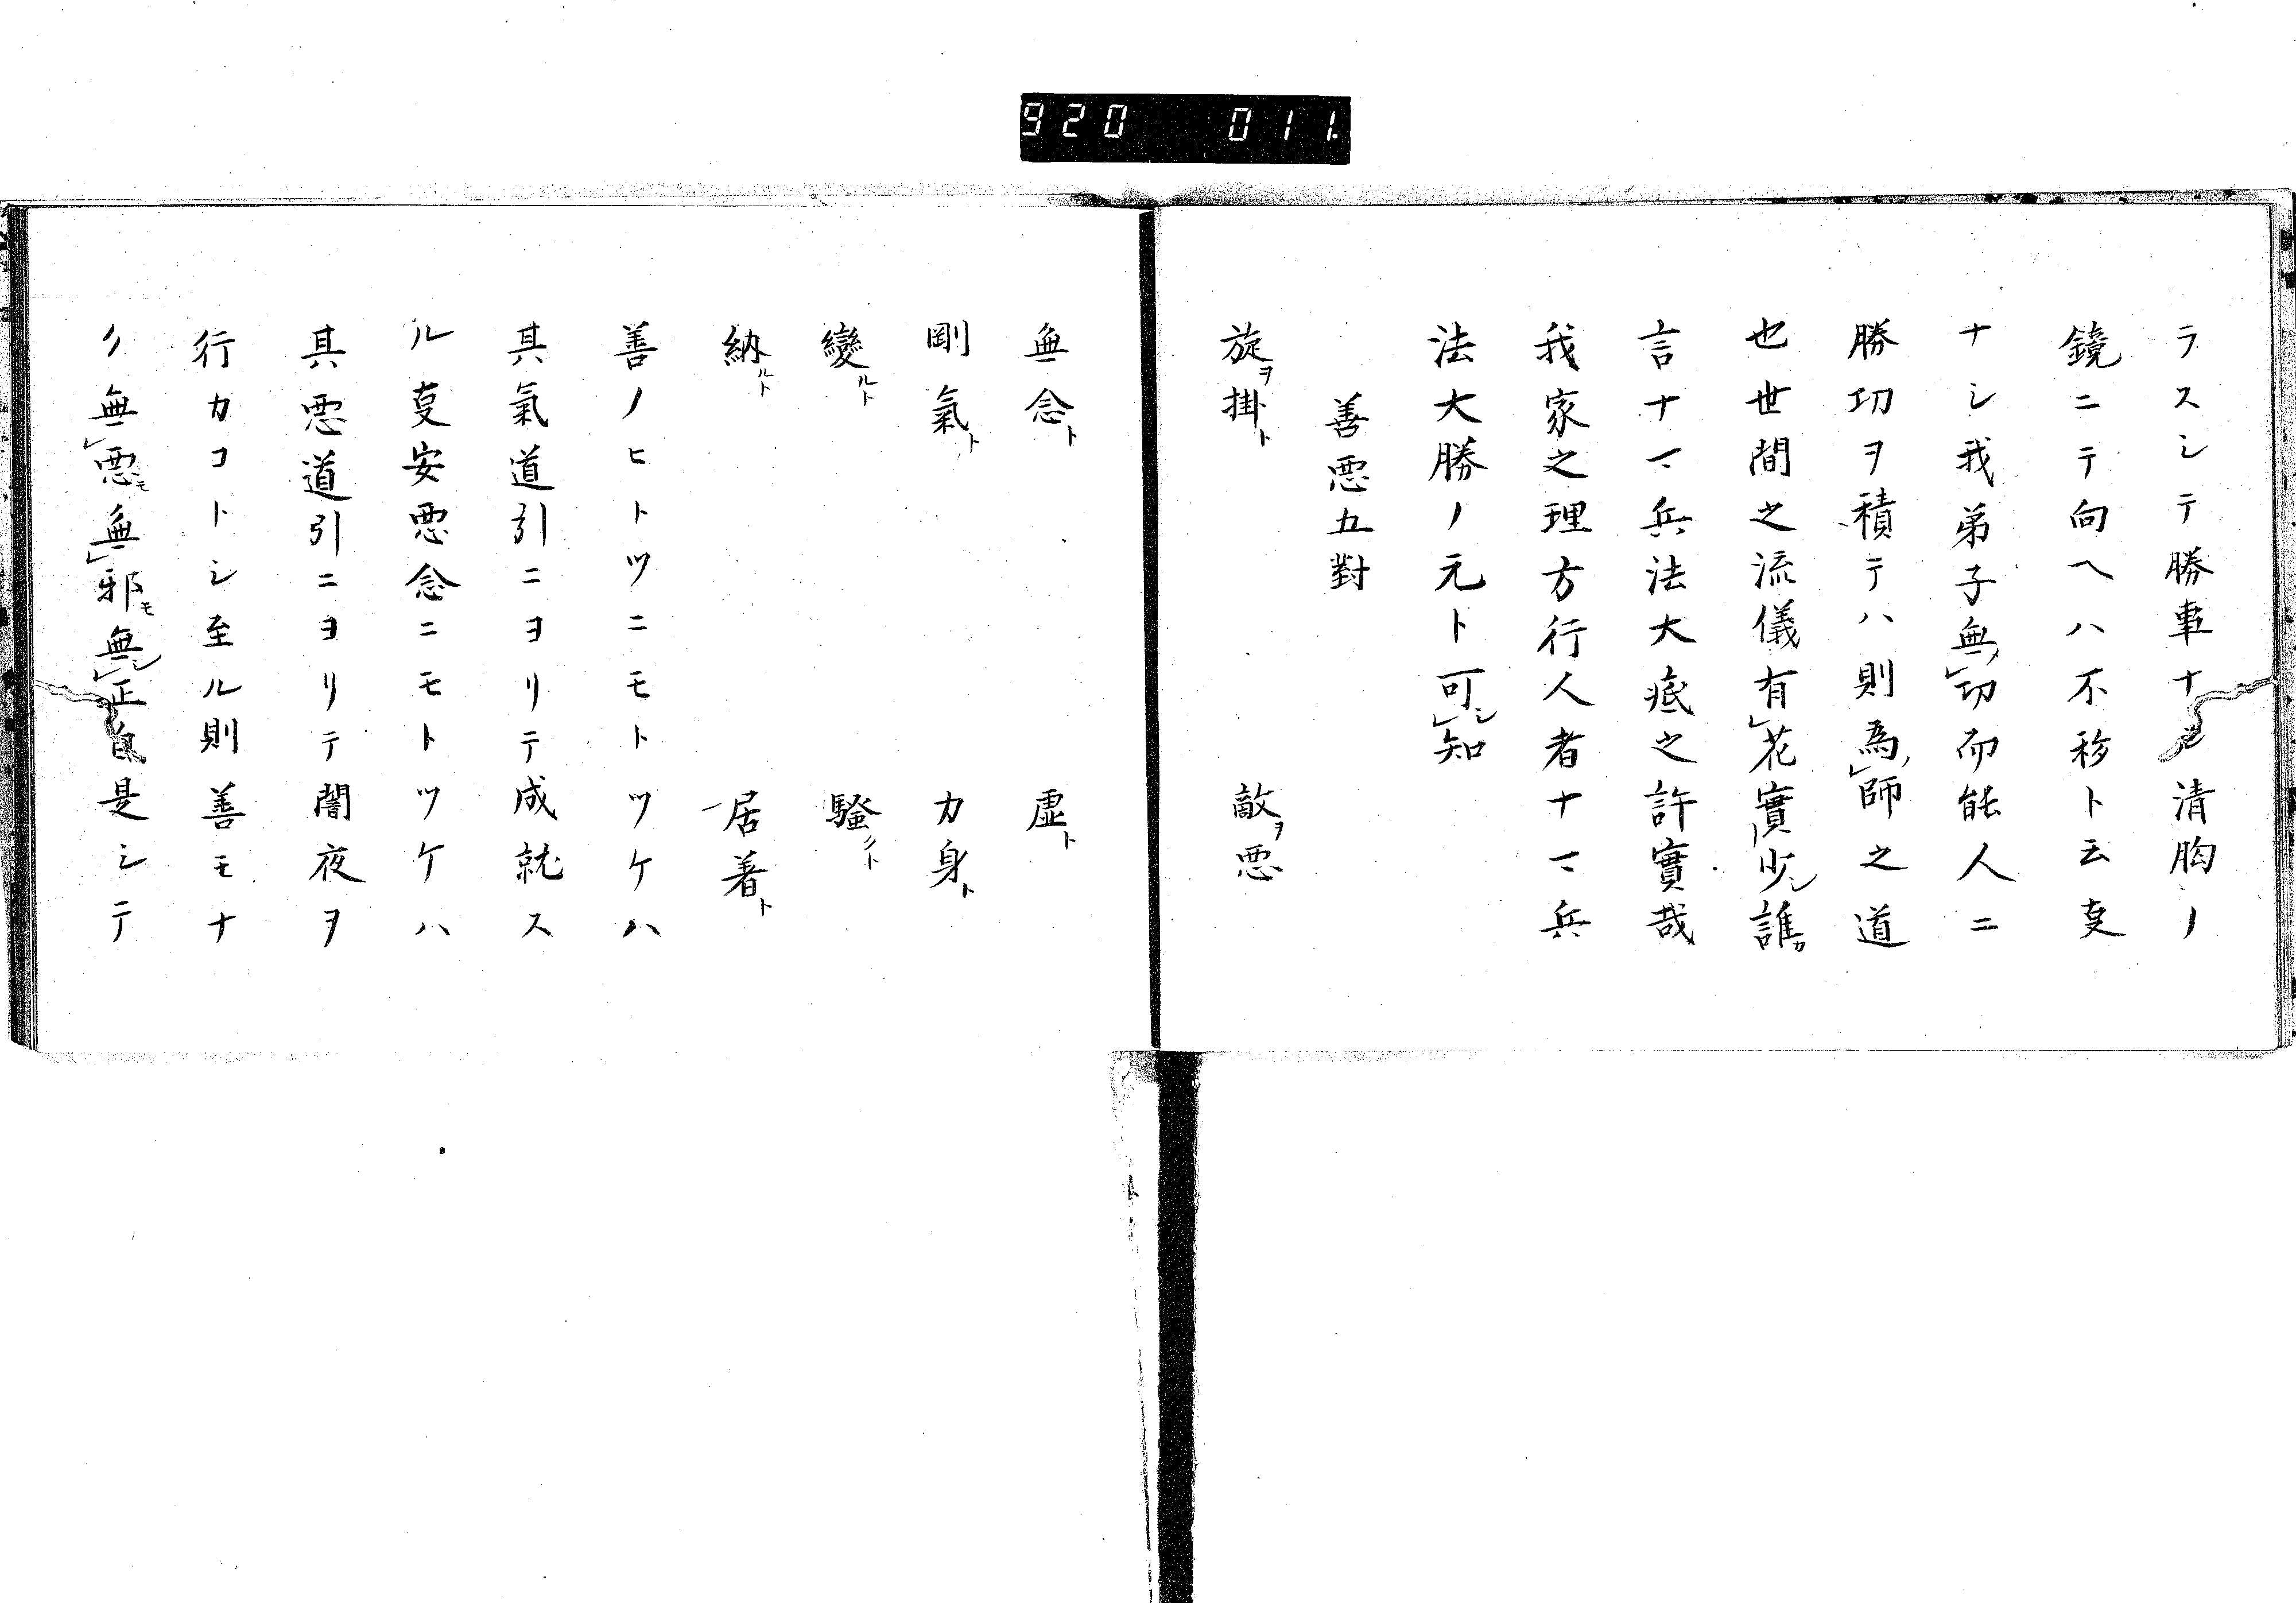 920 011
ラスシテ勝事ナシ清胸ノ
鏡ニテ向ヘハ不移ト云叓
ナシ我弟子無メ切而能人ニ
勝切ヲ積テハ則為ノ師之道
也世間之流儀有花實少シ誰カ
言ナマ兵法大底之許實哉
我家之理方行人者ナマ兵
法大勝ノ元ト可シ知
善悪五對
旋ヲ掛ト 敵ヲ悪
無念ト 虚ト
剛氣ト 力身ト
變ルト 騒クト
納ルト 居着ト
善ノヒトツニモトツケハ
其氣道引ニヨリテ成就ス
ル叓安悪念ニモトツケハ
其悪道引ニヨリテ闇夜ヲ
行カコトシ至ル則善モナ
ク無悪モ無邪モ無シ正自是シテ